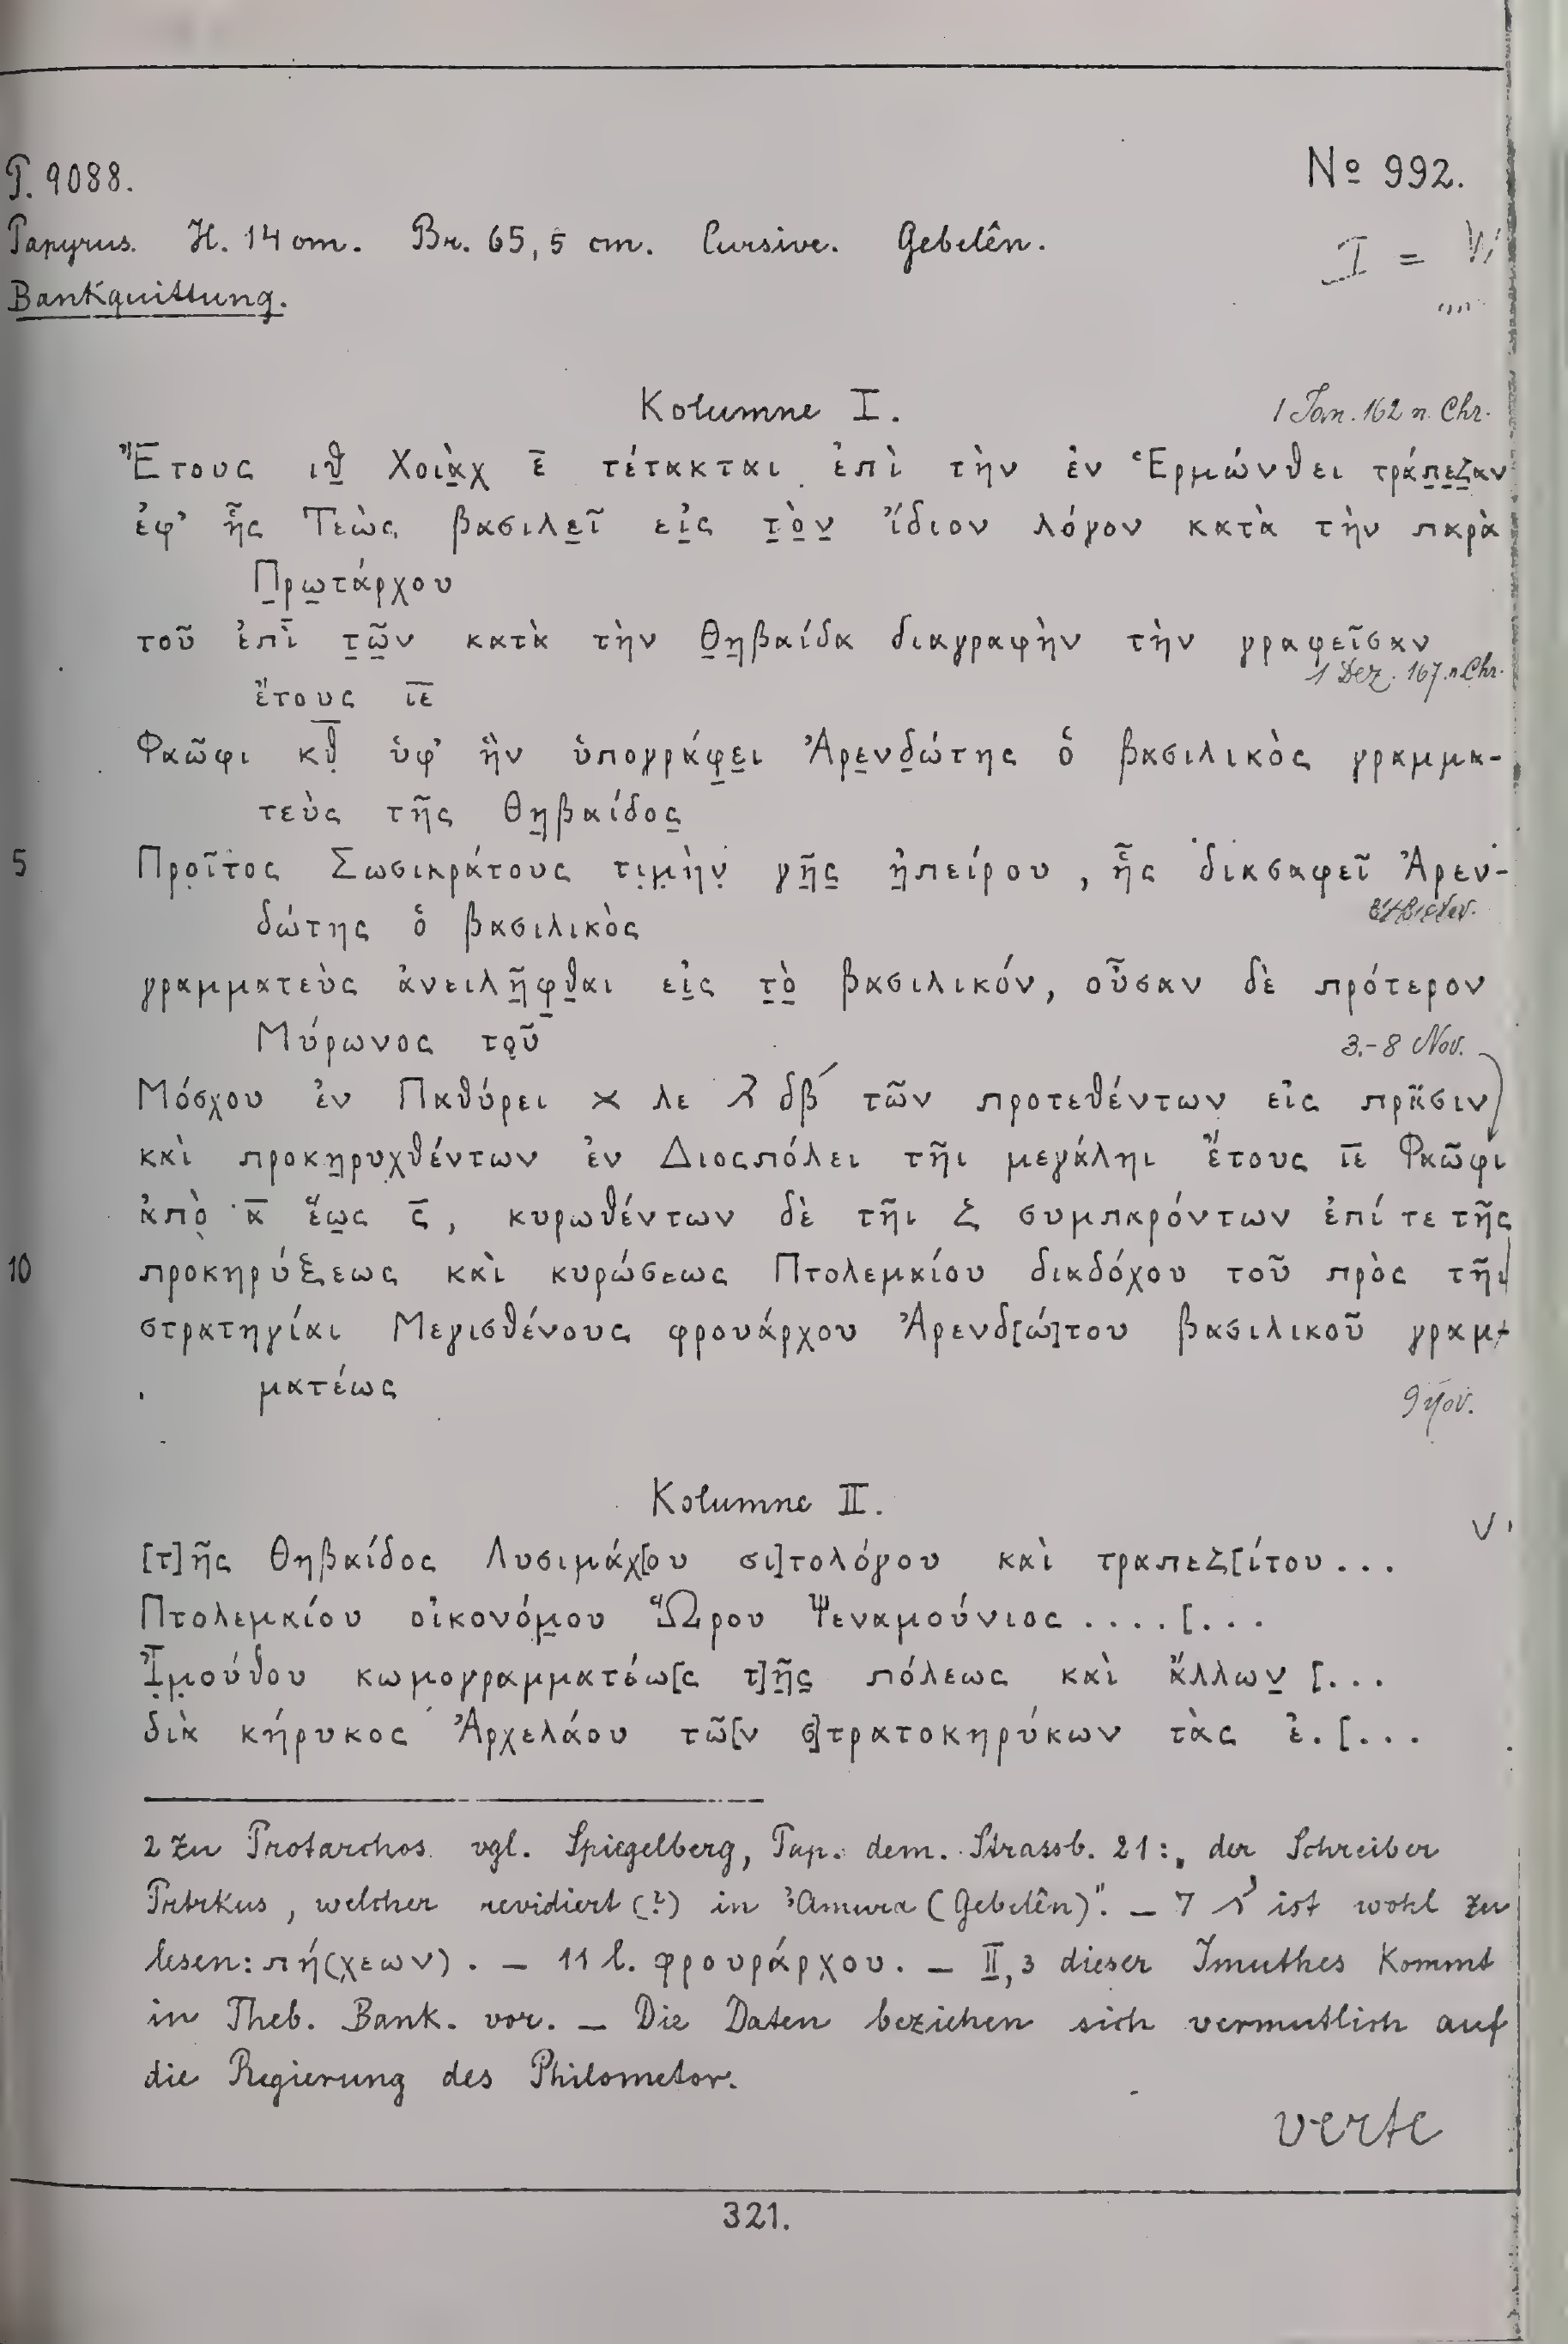 P. 9088.
Nº 992.
Papyrus. H. 14 cm. Br. 65,5 cm. Cursive. Gebelên.
I =
Bankquittung.
Kolumne I.
1 Jan. 162 n. Chr.
Ἔτους ιθ Χοιὰχ ε̅ τέτακται ἐπὶ τὴν ἐν Ἑρμώνθει τράπεζαν
ἐφ' ἧς Τεὼς βασιλεῖ εἰς τὸν ἴδιον λόγον κατὰ τὴν παρὰ
Πρωτάρχου
τοῦ ἐπὶ τῶν κατὰ τὴν Θηβαίδα διαγραφὴν τὴν γραφεῖσαν
1 Dez. 167. n. Chr.
ἔτους ι̅ε̅
Φαῶφι κ̅θ̅ ὑφ' ἣν ὑπογράφει Ἀρενδώτης ὁ βασιλικὸς γραμμα-
τεὺς τῆς Θηβαίδος
5 Προῖτος Σωσικράτους τιμὴν γῆς ἠπείρου, ἧς διασαφεῖ Ἀρεν-
δώτης ὁ βασιλικὸς
γραμματεὺς ἀνειλῆφθαι εἰς τὸ βασιλικόν, οὖσαν δὲ πρότερον
Μύρωνος τοῦ
3.-8 Nov.
Μόσχου ἐν Παθύρει λε δβ´ τῶν προτεθέντων εἰς πρᾶσιν
καὶ προκηρυχθέντων ἐν Διοςπόλει τῆι μεγάληι ἔτους ι̅ε̅ Φαῶφι
ἀπὸ α̅ ἕως ς̅, κυρωθέντων δὲ τῆι ζ συμπαρόντων ἐπί τε τῆς
10 προκηρύξεως καὶ κυρώσεως Πτολεμαίου διαδόχου τοῦ πρὸς τῆι
στρατηγίαι Μεγισθένους φρουάρχου Ἀρενδ[ώ]του βασιλικοῦ γραμ-
ματέως
9 Nov.
Kolumne II.
[τ]ῆς Θηβαίδος Λυσιμάχ[ου σι]τολόγου καὶ τραπεζ[ίτου...
Πτολεμαίου οἰκονόμου Ὥρου Ψεναμούνιος ....[...
Ἰμούθου κωμογραμματέω[ς τ]ῆς πόλεως καὶ ἄλλων [...
διὰ κήρυκος Ἀρχελάου τῶ[ν σ]τρατοκηρύκων τὰς ἐ.[...
2 zu Protarchos vgl. Spiegelberg, Pap. dem. Strassb. 21: „der Schreiber
Prtrkus, welcher revidiert (?) in ꜣAmura (Gebelên)". — 7 ist wohl zu
lesen: πή(χεων). — 11 l. φρουράρχου. — II,3 dieser Imuthes kommt
in Theb. Bank. vor. — Die Daten beziehen sich vermutlich auf
die Regierung des Philometor.
verte
321.